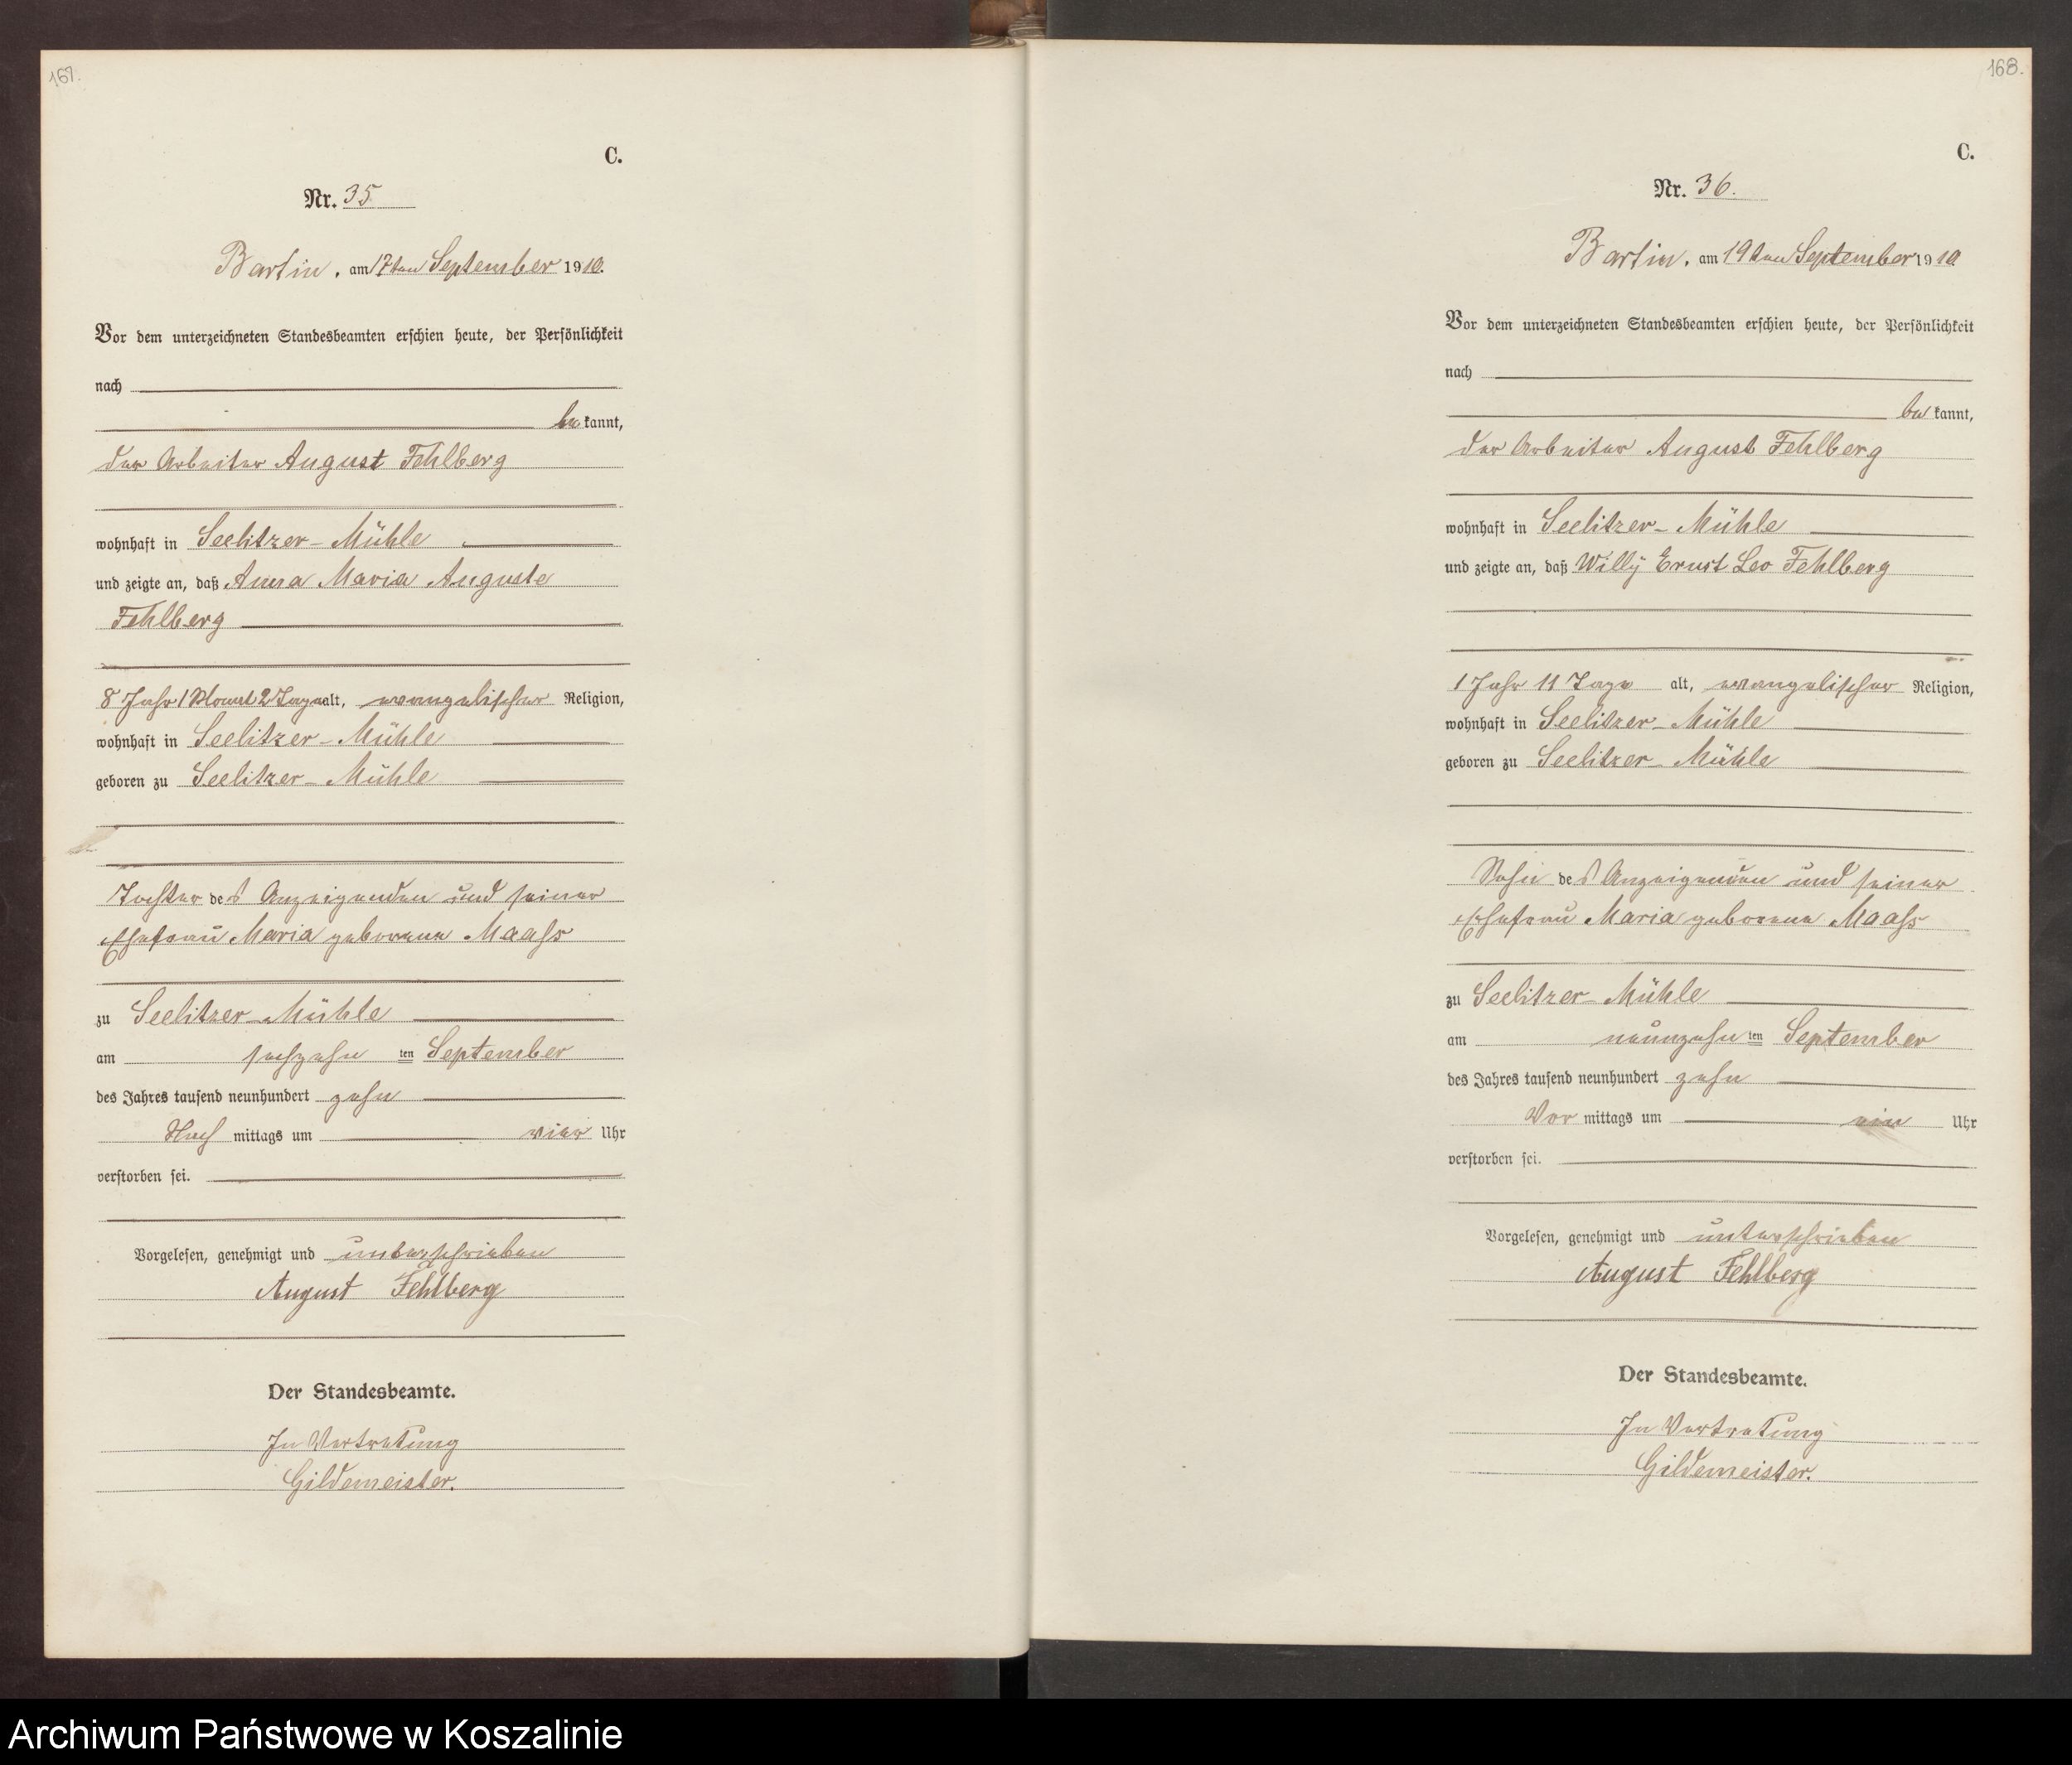 167.
C.
Nr. 35
Bartin, am 17ten September 1910.
Vor dem unterzeichneten Standesbeamten erschien heute, der Persönlichkeit
nach
bekannt,
der Arbeiter August Fehlberg
wohnhaft in Seelitzer-Mühle
und zeigte an, daß Anna Maria Auguste
Fehlberg
8 Jahr 1 Monat 2 Tage alt, evangelischer Religion,
wohnhaft in Seelitzer-Mühle
geboren zu Seelitzer-Mühle
Tochter des Anzeigenden und seiner
Ehefrau Maria geborene Maaß
zu Seelitzer-Mühle
am sechzehn ten September
des Jahres tausend neunhundert zehn
Nach mittags um vier Uhr
verstorben sei.
Vorgelesen, genehmigt und unterschrieben
August Fehlberg
Der Standesbeamte.
In Vertretung
Gildemeister.
168.
C.
Nr. 36.
Bartin, am 19ten September 1910
Vor dem unterzeichneten Standesbeamten erschien heute, der Persönlichkeit
nach
bekannt,
der Arbeiter August Fehlberg
wohnhaft in Seelitzer-Mühle
und zeigte an, daß Willy Ernst Leo Fehlberg
1 Jahr 11 Tage alt, evangelischer Religion,
wohnhaft in Seelitzer-Mühle
geboren zu Seelitzer-Mühle
Sohn des Anzeigenden und seiner
Ehefrau Maria geborene Maaß
zu Seelitzer-Mühle
am neunzehn ten September
des Jahres tausend neunhundert zehn
Vor mittags um ein Uhr
verstorben sei.
Vorgelesen, genehmigt und unterschrieben
August Fehlberg
Der Standesbeamte.
In Vertretung
Gildemeister.
Archiwum Państwowe w Koszalinie